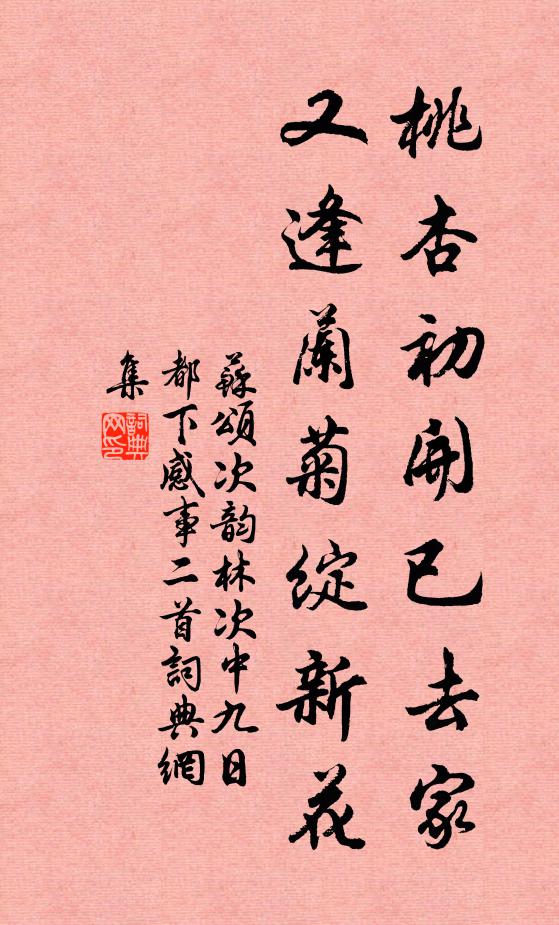 桃杏初開已去家
又逢蘭菊綻新花
蘇頌次韵林次中九日
都下感事二首詞典網
集
詞典
网印